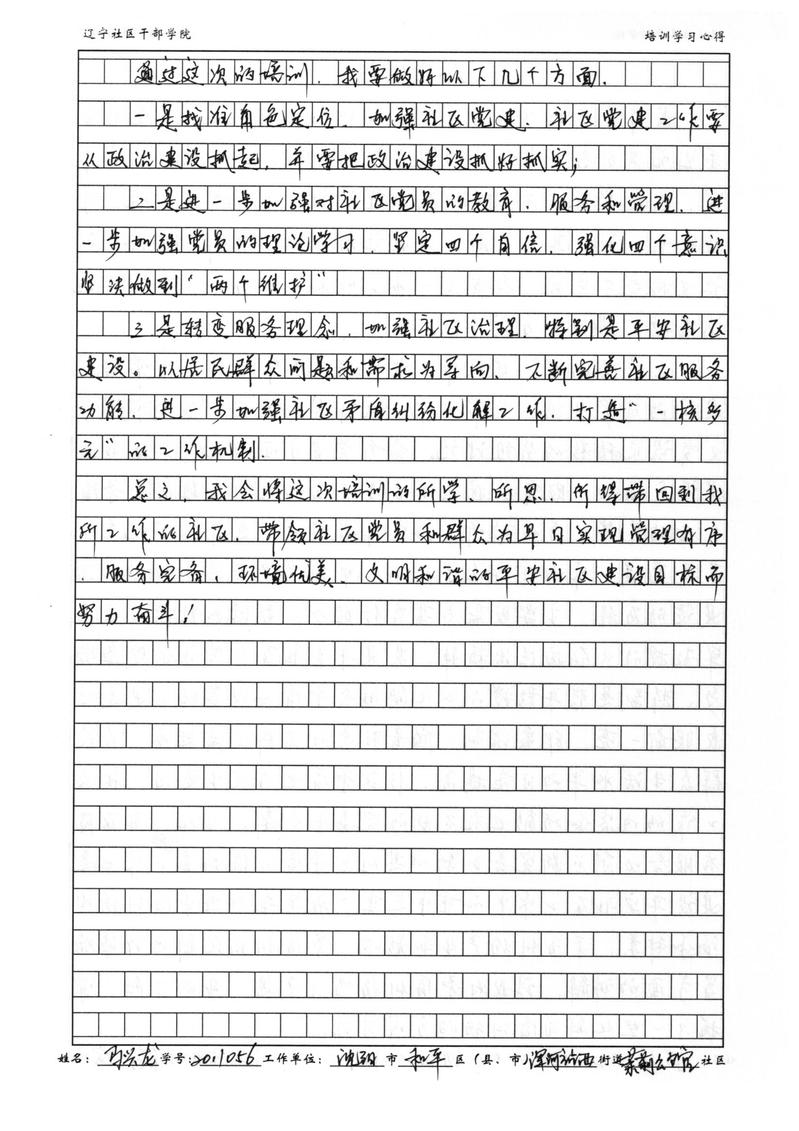 辽宁社区干部学院 培训学习心得
通过这次的培训，我要做好以下几个方面．
一是找准角色定位，加强社区党建．社区党建工作要
从政治建设抓起，并要把政治建设抓好抓实；
二是进一步加强对社区党员的教育、服务和管理．进
一步加强党员的理论学习，坚定四个自信，强化四个意识
坚决做到“两个维护”
三是转变服务理念，加强社区治理，特别是平安社区
建设。以居民群众问题和需求为导向，不断完善社区服务
功能，进一步加强社区矛盾纠纷化解工作，打造“一核多
元”的工作机制．
总之，我会将这次培训的所学、所思、所得带回到我
所工作的社区，带领社区党员和群众为早日实现管理有序
、服务完备、环境优美、文明和谐的平安社区建设目标而
努力奋斗！
姓名：马兴龙 学号：2011056 工作单位：沈阳 市 和平 区（县、市）浑河站西 街道 社区